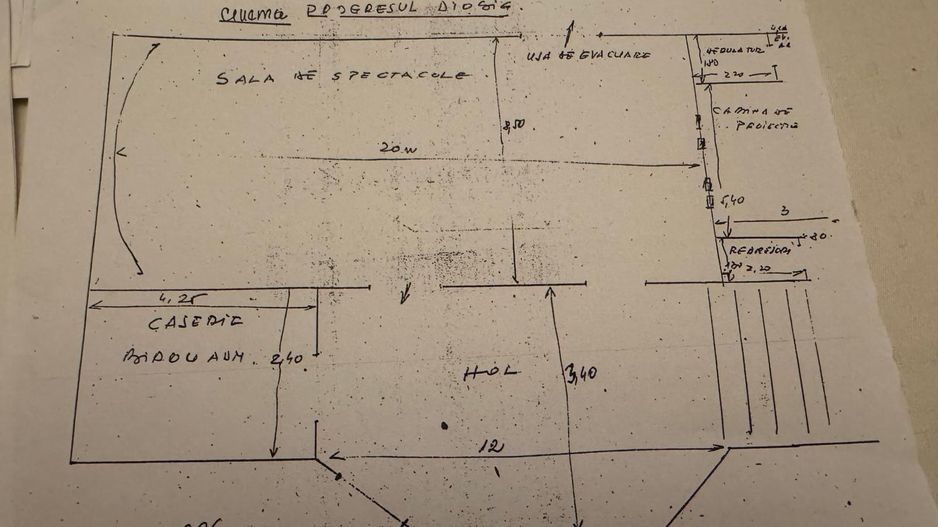 CINEMA PROGRESUL DIOSIG.
UȘA DE EVACUARE
SALA DE SPECTACOLE
2.20
CABINA DE
PROIECTIE
8,50
20 m
5,40
3
2,20
4,25
CASERIE
BIROU ADM. 2,40
HOL
3,40
12